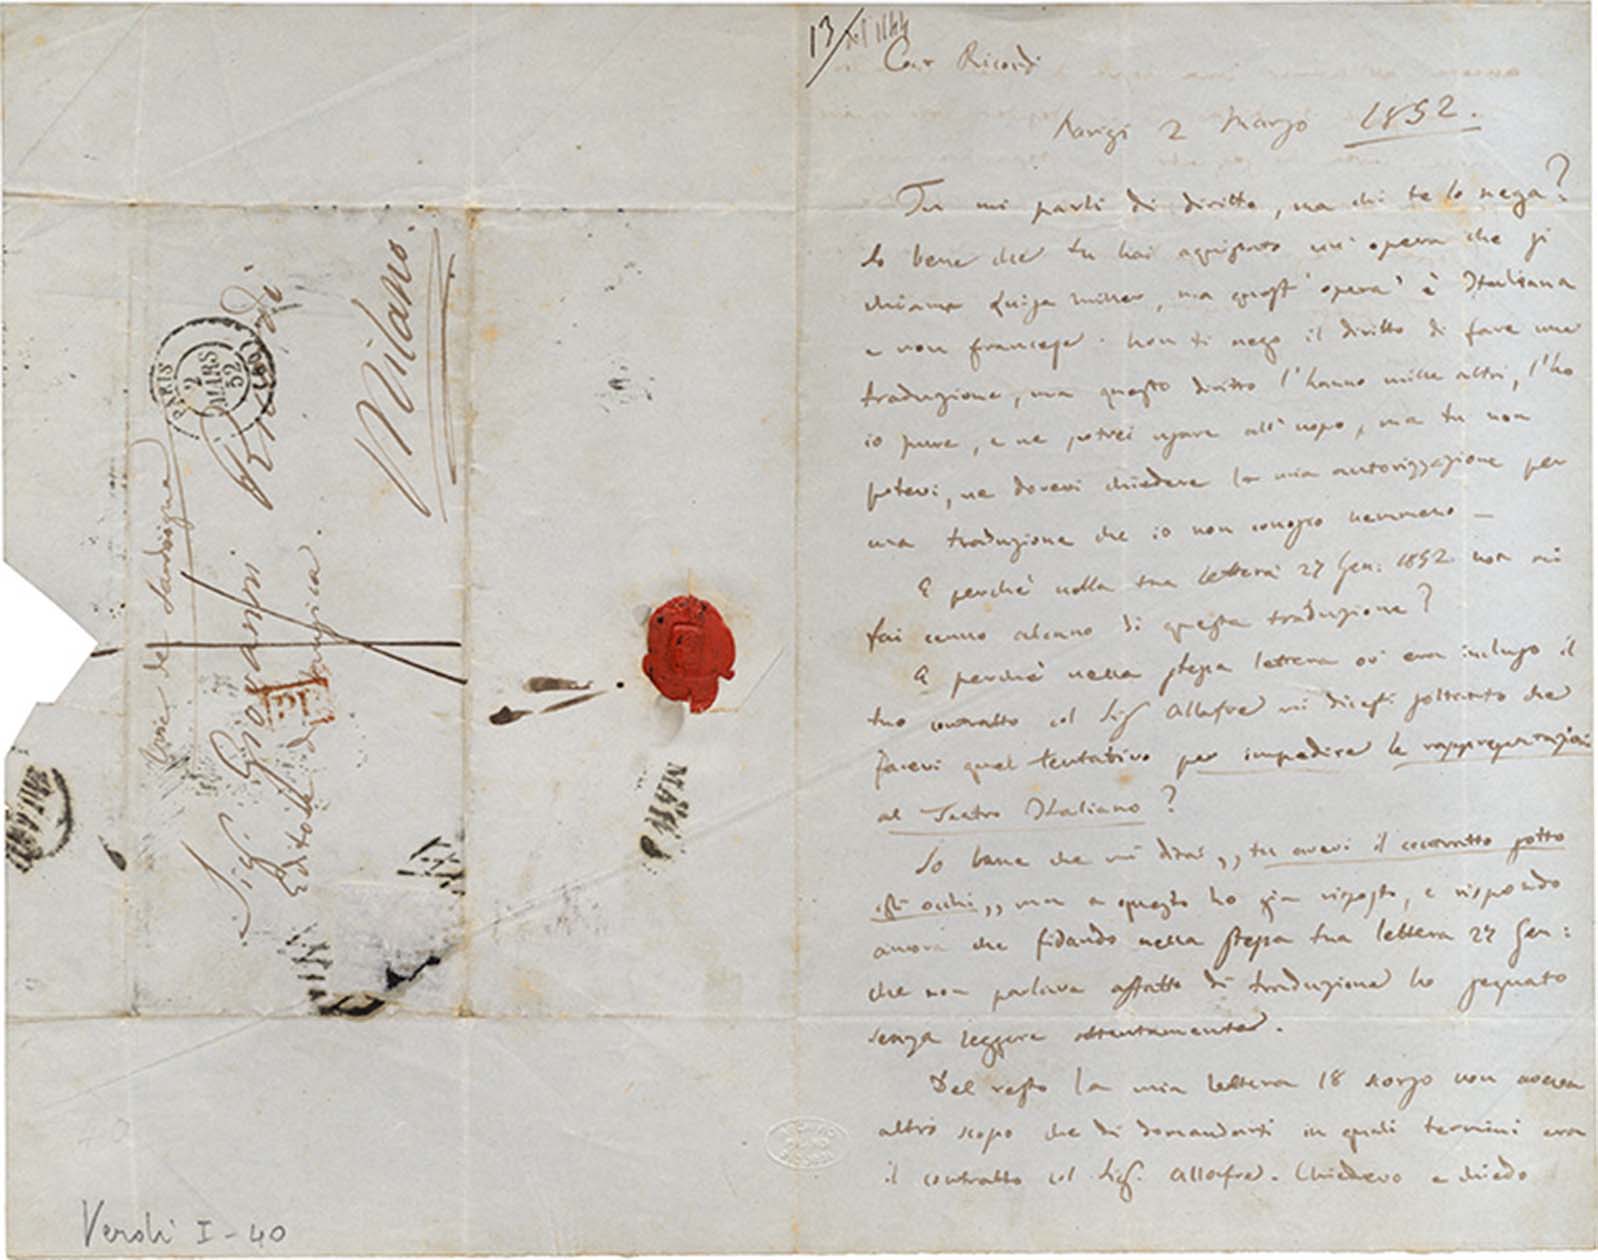 Sig Giovanni Ricordi
Editore di Musica.
Milano.
voie de Sardaigne
PARIS
2
MARS
52
MILANO
Verdi I-40
13
Car Ricordi
Parigi 2 Marzo 1852.
Tu mi parli di diritto, ma chi te lo nega?
So bene che tu hai acquistato un' opera che si
chiama Luisa Miller, ma quest' opera è Italiana
e non francese. Non ti nego il diritto di fare una
traduzione, ma questo diritto l'hanno mille altri, l'ho
io pure, e ne potrei usare all' uopo, ma tu non
potevi, ne dovevi chiedere la mia autorizzazione per
una traduzione che io non conosco nemmeno —
E perchè nella tua lettera 27 Gen: 1852 non mi
fai cenno alcuno di questa traduzione?
E perchè nella stessa lettera ov' era incluso il
tuo contratto col Sig Allafre mi dicesti soltanto che
facevi quel tentativo per impedire le rappresentazioni
al Teatro Italiano?
So bene che mi dirai „tu avevi il contratto sotto
gli occhi„ ma a questo ho già risposto, e rispondo
ancora che fidando nella stessa tua lettera 27 Gen:
che non parlava affatto di traduzione ho segnato
senza leggere attentamente.
Del resto la mia lettera 18 scorso non aveva
altro scopo che di domandarti in quali termini era
il contratto col Sig. Allafre. Chiedevo e chiedo